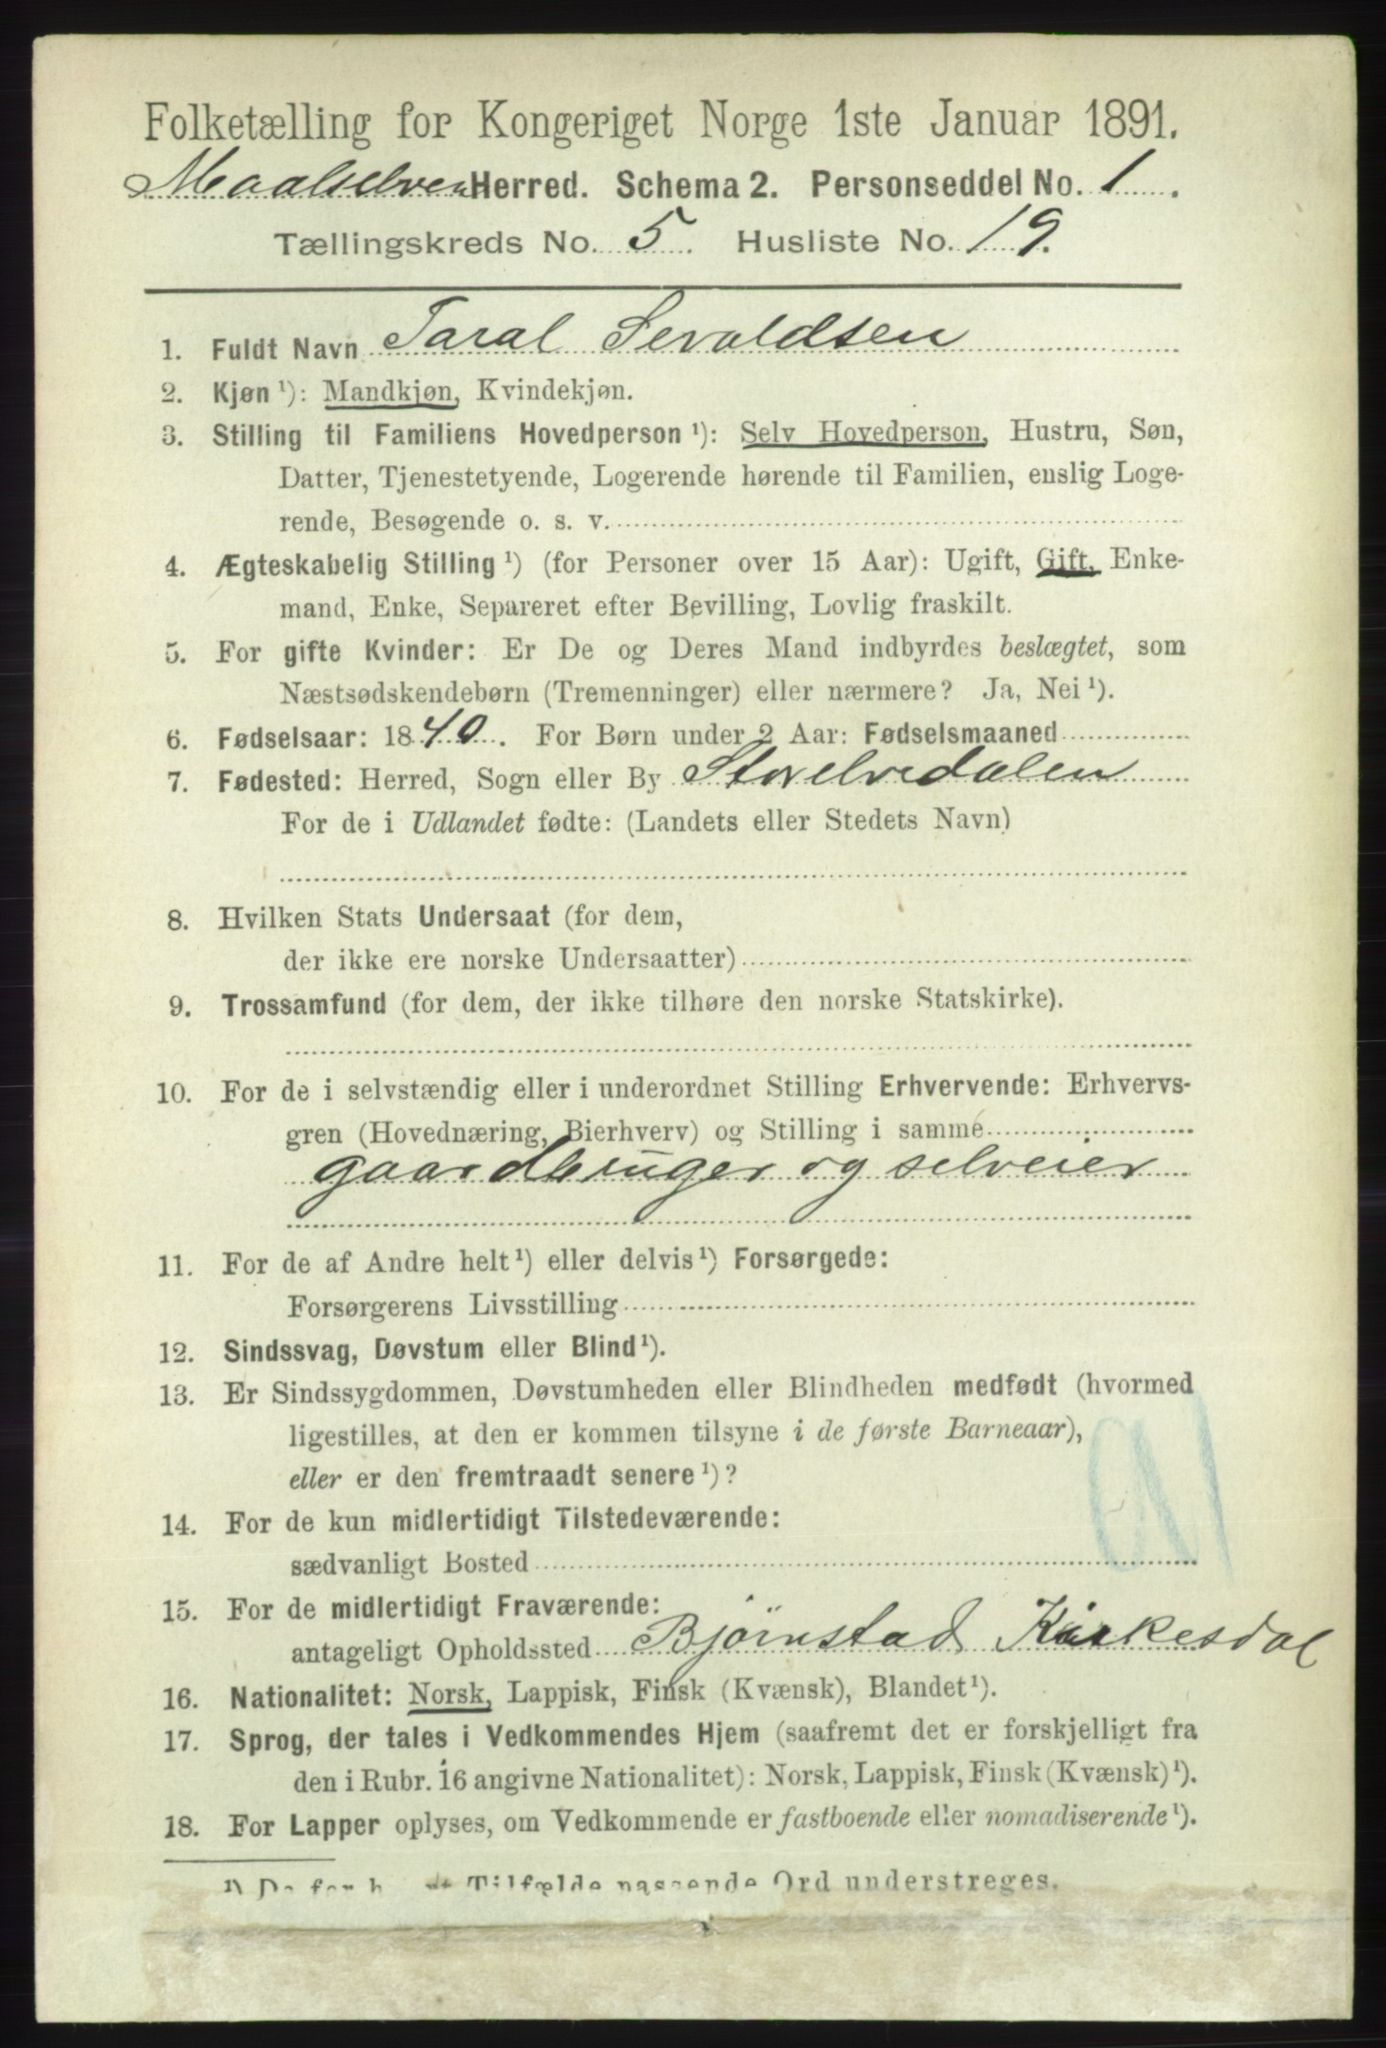 Folketælling for Kongeriget Norge 1ste Januar 1891.
Maalselven Herred. Schema 2. Personseddel No. 1.
Tællingskreds No. 5. Husliste No. 19.
1. Fuldt Navn Taral Sevaldsen
2. Kjøn ¹): Mandkjøn, Kvindekjøn.
3. Stilling til Familiens Hovedperson ¹): Selv Hovedperson, Hustru, Søn,
Datter, Tjenestetyende, Logerende hørende til Familien, enslig Loge-
rende, Besøgende o. s. v.
4. Ægteskabelig Stilling ¹) (for Personer over 15 Aar): Ugift, Gift, Enke-
mand, Enke, Separeret efter Bevilling, Lovlig fraskilt.
5. For gifte Kvinder: Er De og Deres Mand indbyrdes beslægtet, som
Næstsødskendebørn (Tremenninger) eller nærmere? Ja, Nei ¹).
6. Fødselsaar: 1840. For Børn under 2 Aar: Fødselsmaaned
7. Fødested: Herred, Sogn eller By Storelvedalen
For de i Udlandet fødte: (Landets eller Stedets Navn)
8. Hvilken Stats Undersaat (for dem,
der ikke ere norske Undersaatter)
9. Trossamfund (for dem, der ikke tilhøre den norske Statskirke).
10. For de i selvstændig eller i underordnet Stilling Erhvervende: Erhvervs-
gren (Hovednæring, Bierhverv) og Stilling i samme
gaardbruger og selveier
11. For de af Andre helt ¹) eller delvis ¹) Forsørgede:
Forsørgerens Livsstilling
12. Sindssvag, Døvstum eller Blind ¹).
13. Er Sindssygdommen, Døvstumheden eller Blindheden medfødt (hvormed
ligestilles, at den er kommen tilsyne i de første Barneaar),
eller er den fremtraadt senere ¹)?
14. For de kun midlertidigt Tilstedeværende:
sædvanligt Bosted
15. For de midlertidigt Fraværende:
antageligt Opholdssted Bjørnstad Kirkesdal
16. Nationalitet: Norsk, Lappisk, Finsk (Kvænsk), Blandet ¹).
17. Sprog, der tales i Vedkommendes Hjem (saafremt det er forskjelligt fra
den i Rubr. 16 angivne Nationalitet): Norsk, Lappisk, Finsk (Kvænsk) ¹).
18. For Lapper oplyses, om Vedkommende er fastboende eller nomadiserende ¹).
¹) De for Tilfælde passende Ord understreges.